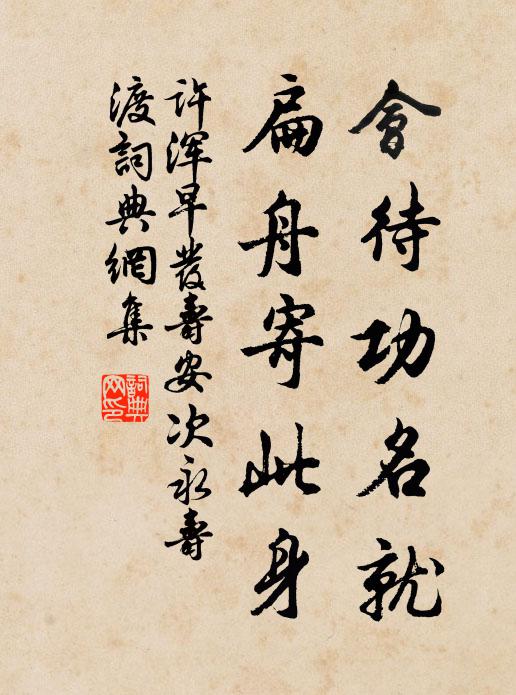 會待功名就
扁舟寄此身
許渾早發壽安次永壽
渡詞典網集
詞典
网印